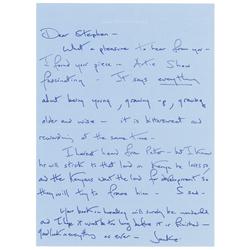 Dear Stephen -
What a pleasure to hear from you -
I found your piece - Artie Shaw
fascinating - It says everything
about being young, growing up, growing
older and wise - it is bittersweet and
rewarding at the same time -
I haven't heard from Peter - but I know
he will stick to that land in Kenya he
and the Kenyans want the land for development so
they will try to force him - So sad -
Your book on will surely be
and I hope it won't be long before it is finished -
as ever -